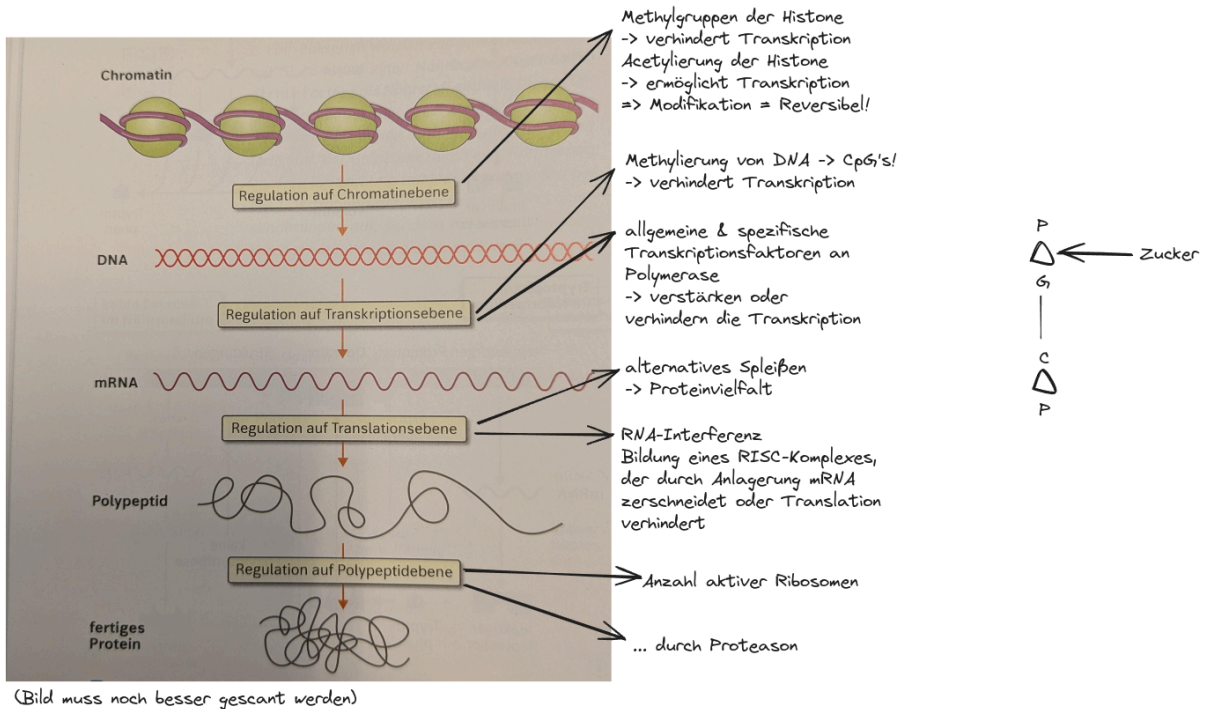 Chromatin
Regulation auf Chromatinebene
DNA
Regulation auf Transkriptionsebene
mRNA
Regulation auf Translationsebene
Polypeptid
Regulation auf Polypeptidebene
fertiges
Protein
(Bild muss noch besser gescant werden)
Methylgruppen der Histone
-> verhindert Transkription
Acetylierung der Histone
-> ermöglicht Transkription
=> Modifikation = Reversibel!
Methylierung von DNA -> CpG's!
-> verhindert Transkription
allgemeine & spezifische
Transkriptionsfaktoren an
Polymerase
-> verstärken oder
verhindern die Transkription
alternatives Spleißen
-> Proteinvielfalt
RNA-Interferenz
Bildung eines RISC-Komplexes,
der durch Anlagerung mRNA
zerschneidet oder Translation
verhindert
Anzahl aktiver Ribosomen
... durch Proteason
P
Zucker
G
C
P